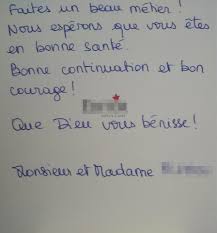 Faites un beau métier !
Nous espérons que vous êtes
en bonne santé.
Bonne continuation et bon
courage !
Que Dieu vous bénisse !
Monsieur et Madame